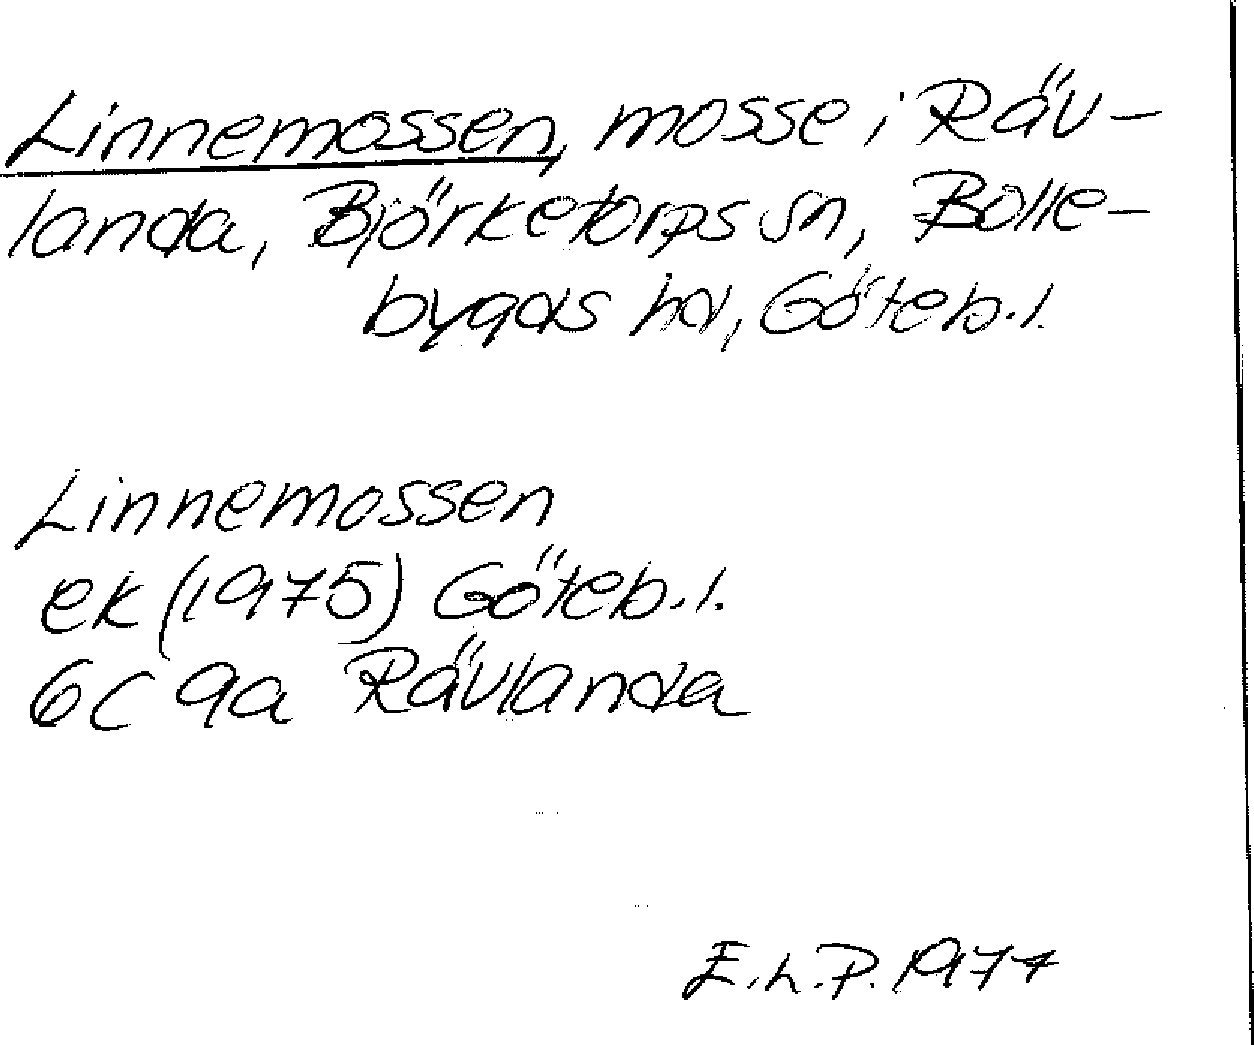 Linnemossen, mosse i Räv-
landa, Björketorps sn, Bolle-
bygds hd, Göteb.l.
Linnemossen
ek (1975) Göteb.l.
6C 9a Rävlanda
E.L.P. 1977